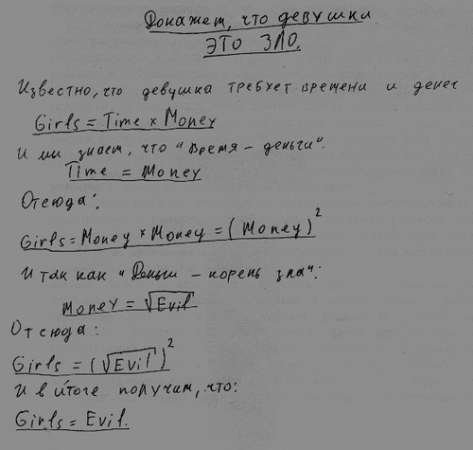 Докажем, что девушки
ЭТО ЗЛО.
Известно, что девушка требует времени и денег
Girls = Time × Money
И мы знаем, что "Время - деньги".
Time = Money
Отсюда:
Girls = Money × Money = (Money)²
И так как "Деньги - корень зла":
Money = √Evil
Отсюда:
Girls = (√Evil)²
И в итоге получим, что:
Girls = Evil.